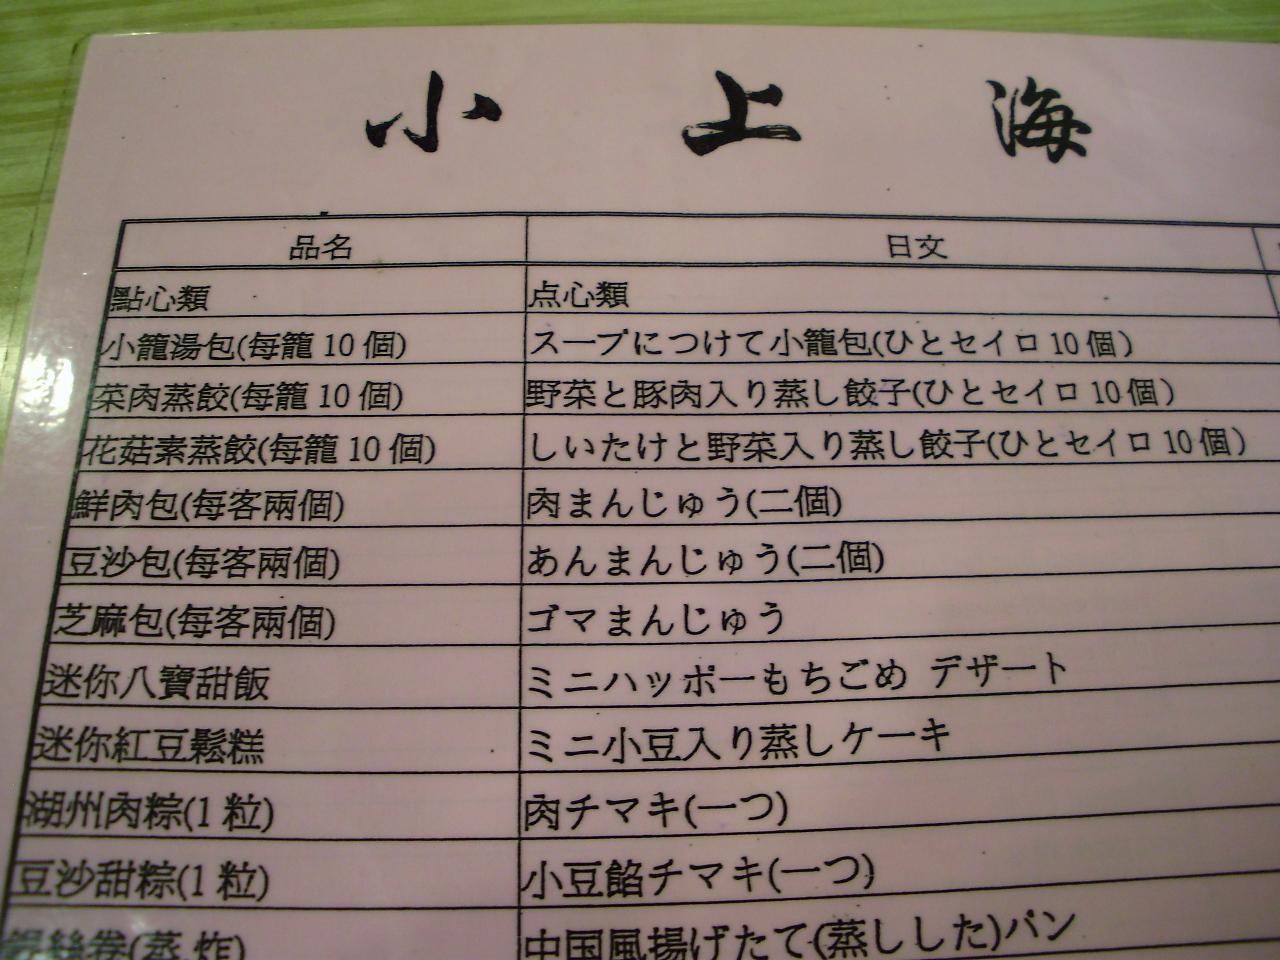 小 上 海
品名 日文
點心類 点心類
小籠湯包(每籠 10 個) スープにつけて小籠包(ひとセイロ 10 個)
菜肉蒸餃(每籠 10 個) 野菜と豚肉入り蒸し餃子(ひとセイロ 10 個)
花菇素蒸餃(每籠 10 個) しいたけと野菜入り蒸し餃子(ひとセイロ 10 個)
鮮肉包(每客兩個) 肉まんじゅう(二個)
豆沙包(每客兩個) あんまんじゅう(二個)
芝麻包(每客兩個) ゴマまんじゅう
迷你八寶甜飯 ミニハッポーもちごめ デザート
迷你紅豆鬆糕 ミニ小豆入り蒸しケーキ
湖州肉粽(1 粒) 肉チマキ(一つ)
豆沙甜粽(1 粒) 小豆餡チマキ(一つ)
銀絲卷(蒸.炸) 中国風揚げたて(蒸しした)パン